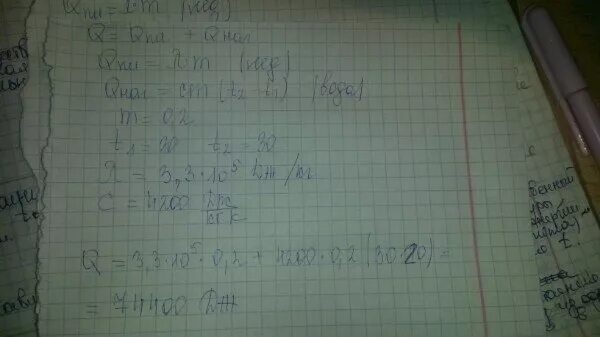 Qпл = λ·m (лед)
Q = Qпл + Qнаг
Qпл = λ·m (лед)
Qнаг = cm (t₂ - t₁) (вода)
m = 0,2
t₁ = 20 t₂ = 30
λ = 3,3·10⁵ Дж/кг
C = 4200 Дж/кг К
Q = 3,3·10⁵·0,2 + 4200·0,2 (30-20) =
= 74400 Дж